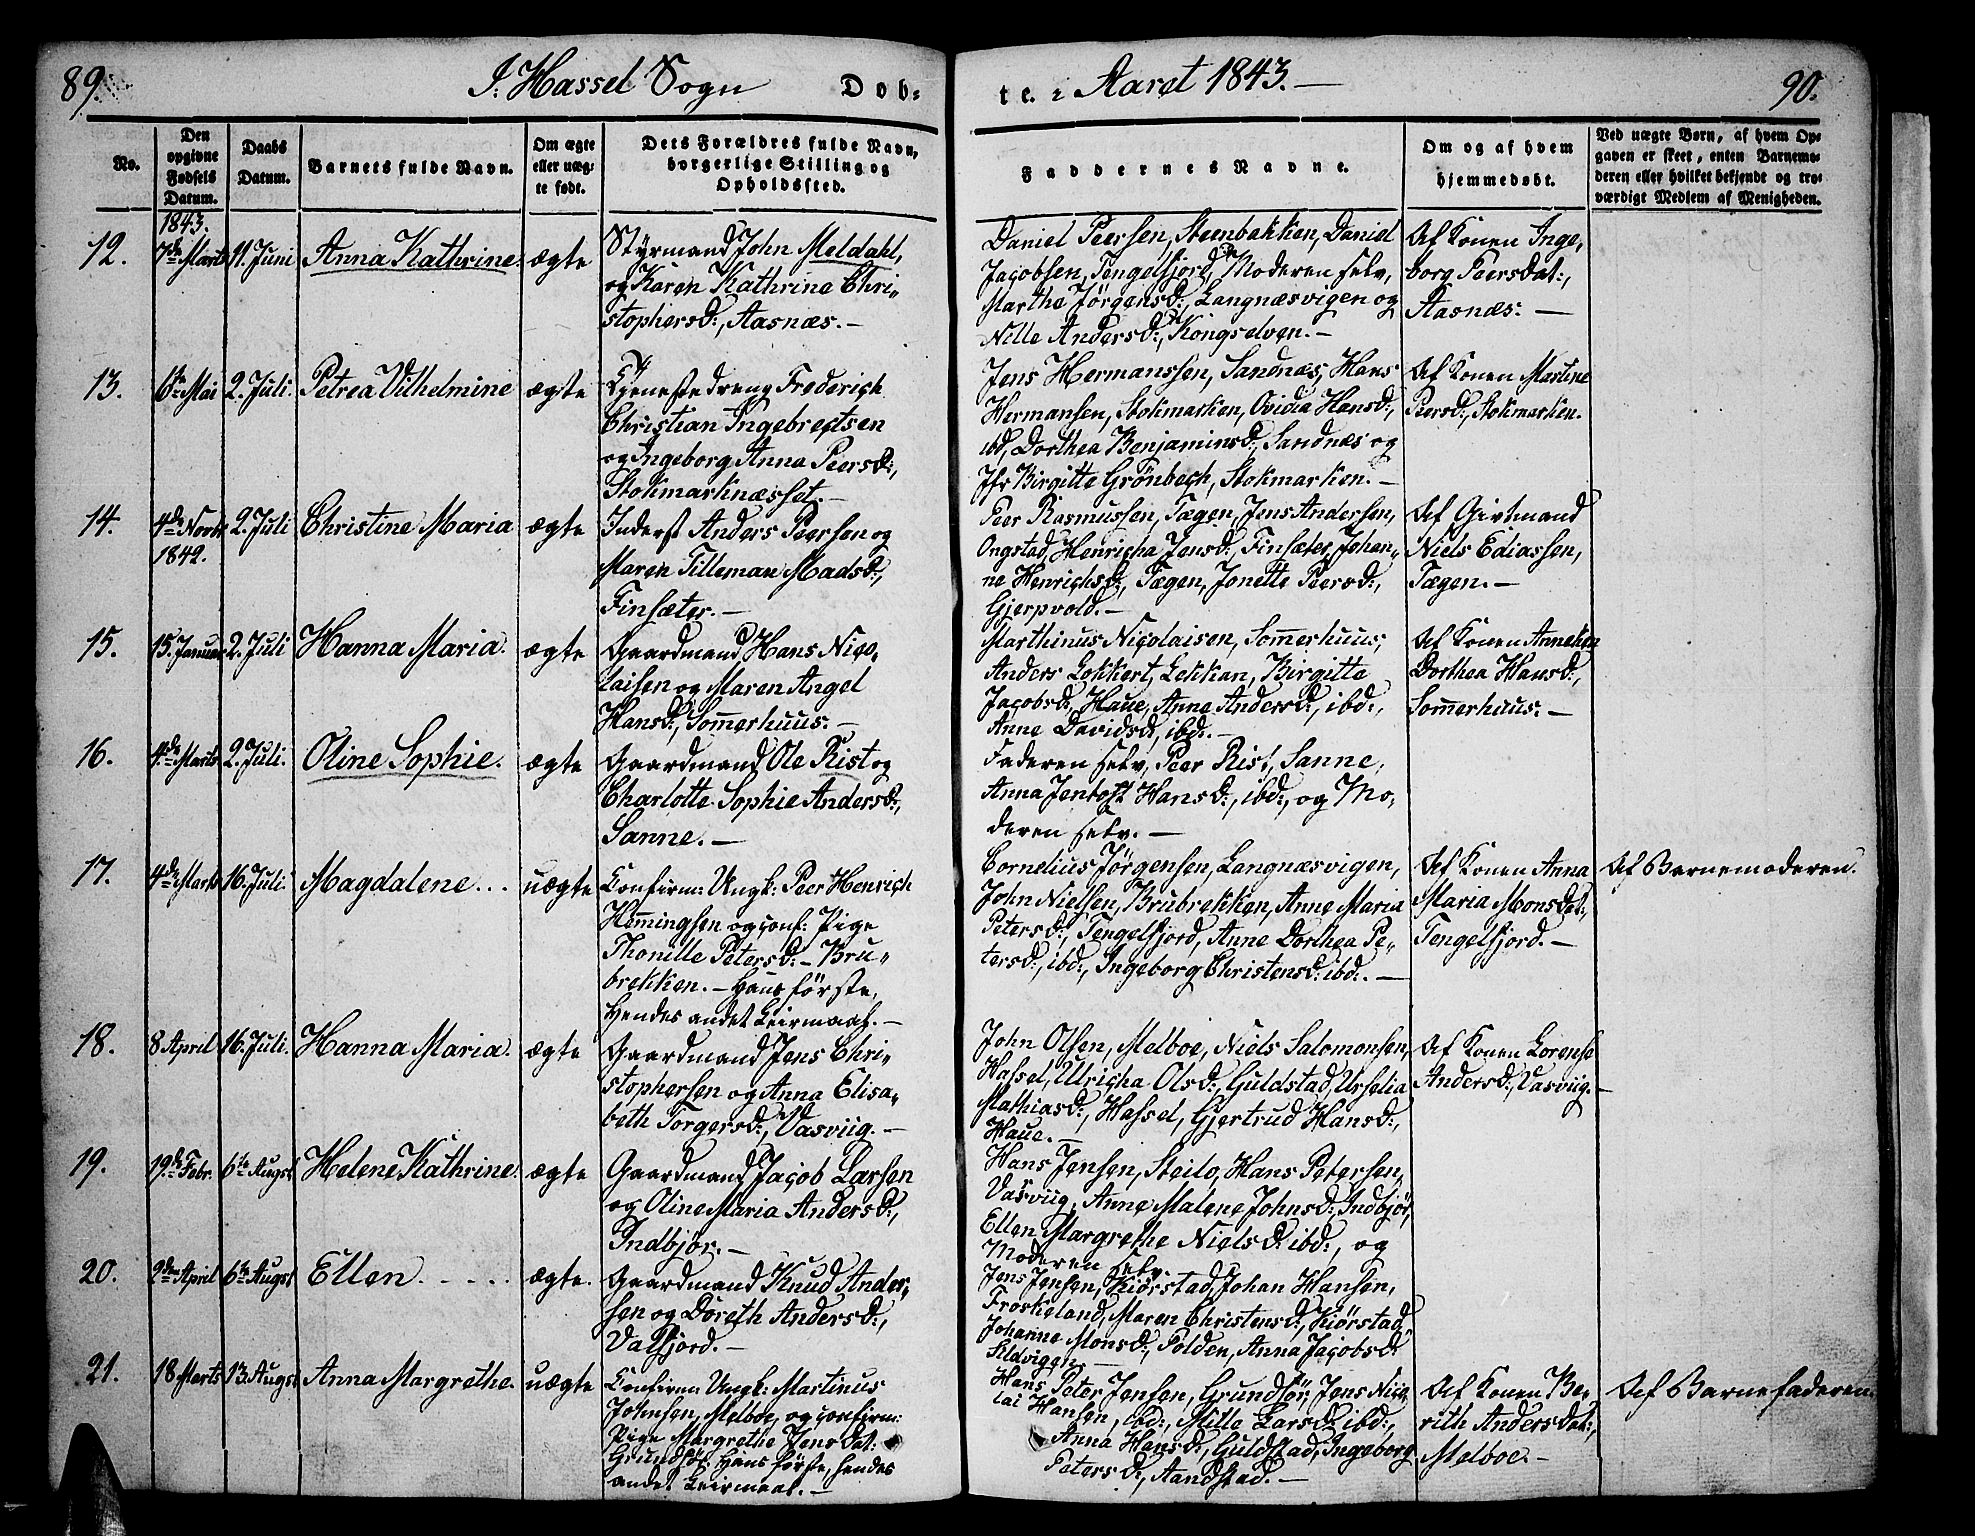 89.
I Hassel Sogn
Døb:
te. i Aaret 1843.—
90.
No.
Den opgivne Fødsels Datum.
Daabs Datum.
Barnets fulde Navn.
Om ægte eller uæg- te født.
Dets Forældres fulde Navn, borgerlige Stilling og Opholdssted.
Faddernes Navne.
Om og af hvem hjemmedøbt.
Ved uægte Børn, af hvem Op- gaven er skeet, enten Barnemo- deren eller hvilket bekjendt og tro- værdigt Medlem af Menigheden.
1843.
12.
7de Marts
11. Juni
Anna Kathrine.
ægte
Styrmand John Meldahl,
og Karen Kathrine Chri-
stophersd:, Aasnæs.—
Daniel Peersen, Steenbakken, Daniel
Jacobsen, Tengelfjord, Moderen selv,
Marthe Jørgensd:, Langnæsvigen og
Nille Andersd:, Kongselven.—
Af Konen Inge-
borg Peersdat:,
Aasnæs.—
13.
6te Mai
2. Juli.
Petrea Vilhelmine
ægte
Tjenestedreng Frederich
Christian Ingebregtsen
og Ingeborg Anna Peersd:,
Stokmarknæsset.—
Jens Hermanssen, Sandnæs, Hans
Hermansen, Stokmarken, Ovidia Hansd:,
ibd, Dorthea Benjaminsd:, Sandnæs og
Jfr Birgitte Grönbech, Stokmarken.—
Af Konen Martine
Peersd:, Stokmarken.
14.
4de Novbr
1842.
2. Juli
Christine Maria
ægte
Inderst Anders Peersen og
Maren Tilleman Madsd:,
Finsæter.—
Peer Rasmussen, Tægen, Jens Andersen,
Ongstad, Henricha Jensd:, Finsæter, Johan-
ne Henrichsd:, Tægen, Jonette Peersd:,
Gjerpvold.—
Af Givtmand
Niels Ediassen,
Tægen.—
15.
15. Januar
2. Juli
Hanna Maria.
ægte
Gaardmand Hans Nico-
laisen og Maren Angel
Hansd:, Sommerhuus.—
Marthinus Nicolaisen, Sommerhuus,
Anders Lokkert, Lekkan, Birgitte
Jacobsd:, Haue, Anne Andersd:, ibd:,
Anne Davidsd, ibd:.—
Af Konen Anneken
Dorthea Hansd:,
Sommerhuus.—
16.
4de Marts
2. Juli.
Oline Sophie.
ægte
Gaardmand Ole Rist og
Charlotte Sophie Andersd:,
Sanne.—
Faderen selv, Peer Rist, Sanne,
Anna Jentoft Hansd:, ibd:, og Mo-
deren selv.—
17.
4de Marts
16. Juli.
Magdalene...
uægte
Confirm: Ungk: Peer Henrich
Hemmingsen og conf: Pige
Thonille Petersd:— Bru-
brekken.— Hans første,
Hendes andet Leiermaal.—
Cornelius Jørgensen, Langnæsvigen,
John Nielsen, Brubrekken, Anne Maria
Petersd:, Tengelfjord, Anne Dorthea Pe-
tersd:, ibd:, Ingeborg Christensd: ibd:.—
Af Konen Anna
Maria Monsdat:,
Tengelfjord.—
Af Barnemoderen.
18.
8 April
16. Juli.
Hanna Maria.
ægte
Gaardmand Jens Chri-
stophersen og Anna Elisa-
beth Torgersd:, Vasviig.—
John Olsen, Melboe, Niels Salomonsen,
Hassel, Ulricha Olsd:, Guldstad, Urselia
Mathiasd:, Hassel, Gjertrud Hansd:,
Haue.—
Af Konen Lorense
Andersd:, Vasviig.—
19.
19. de Febr.
6te Augst
Helene Kathrine.
ægte
Gaardmand Jacob Larsen
og Oline Maria Andersd:,
Indbjør.—
Hans Jensen, Steilo, Hans Petersen,
Vasviig, Anne Malene Johnsd:, Indbjør,
Ellen Margrethe Nielsd: ibd:, og
Moderen selv.
20.
2den April
6te Augst
Ellen.....
ægte.
Gaardmand Knud Ander-
sen og Doreth Andersd:,
Valfjord.—
Jens Jensen, Kiørstad, Johan Hansen,
Froskeland, Maren Christensd:, Kiørstad,
Johanne Monsd:, Polden, Anna Jacobsd:
Sildvigen.—
21.
18 Marts
13. Augst
Anna Margrethe.
uægte
Confirm: Ungk: Martinus
Johnsen, Melboe, og confirm:
Pige Margrethe Jensdat:
Grundfør. Hans første, hendes
andet Leiermaal.—
Hans Peter Jensen, Grundfør, Jens Nico-
lai Hansen, ibd:, Mille Larsd: ibd:,
Anna Hansd:, Guldstad, Ingeborg
Petersd:, Aandstad.—
Af Konen Be-
rith Andersdat:,
Melboe.—
Af Barnefaderen.